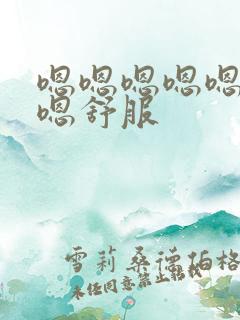 嗯嗯嗯嗯嗯
嗯舒服
雪莉桑德伯格
未经同意禁止转载